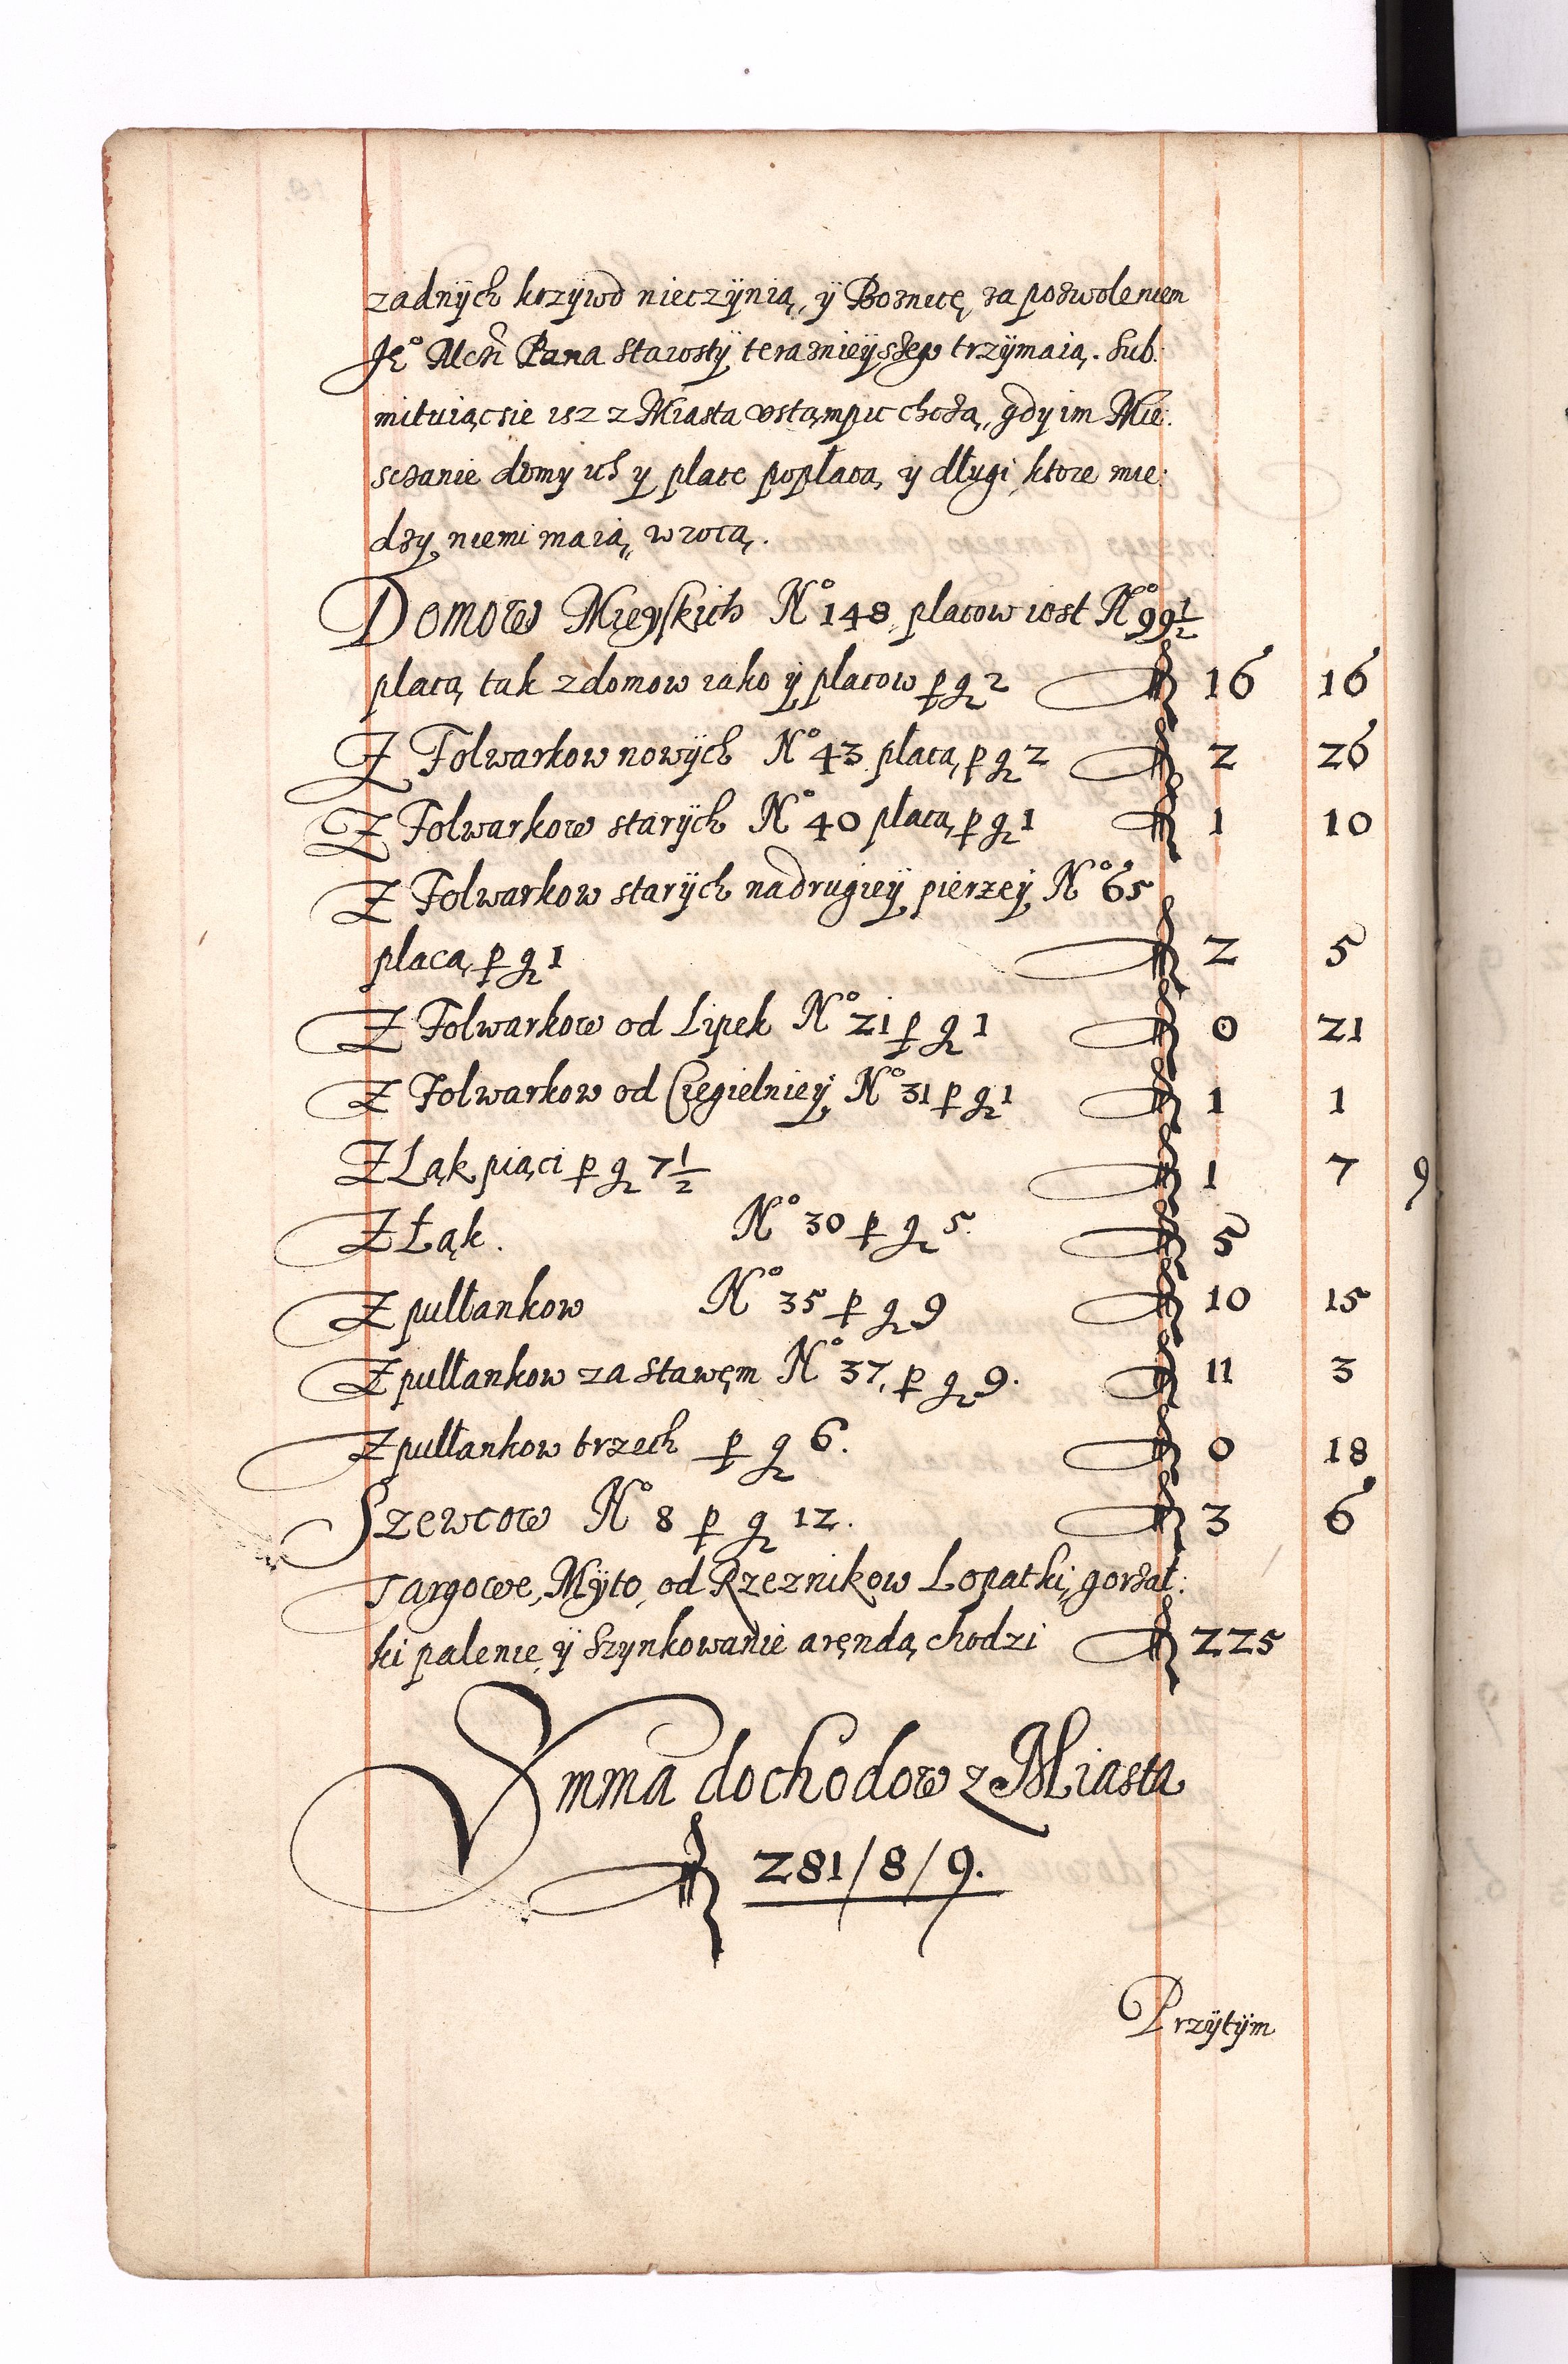 zadnÿch krzÿwd nieczÿnią, ÿ Boznicę za pozwoleniem
Jeº Mcſi Pana Starostÿ teraznieÿszego trzÿmaią. Sub:
mituiącsie isz z Miasta ustąmpic chczą, gdy im Mie:
sczanie domy ich y place popłacą, y długi, ktore mie:
dzy niemi maią, wrocą.
Domow Mieÿskich Nº 148 placow iest Nº 99 1/2
placą tak z domow iako ÿ placow p gr 2 fl 16 16
Z Folwarkow nowÿch Nº 43 placą p gr 2 fl 2 26
Z Folwarkow starÿch Nº 40 placą p gr 1 fl 1 10
Z Folwarkow starÿch na drugieÿ pierzeÿ Nº 65
placą p gr 1 fl 2 5
Z Folwarkow od Lipek Nº 21 p gr 1 fl 0 21
Z Folwarkow od Czegielnieÿ Nº 31 p gr 1 fl 1 1
Z Ląk piąci p gr 7 1/2 fl 1 7 9
Z Łąk. Nº 30 p gr 5. fl 5
Z pułłankow Nº 35 p gr 9 fl 10 15
Z pułłankow za stawęm Nº 37, p gr 9. fl 11 3
Z pułłankow trzech p gr 6. fl 0 18
Szewcow Nº 8 p gr 12. fl 3 6
Targowe, Mÿto, od Rzeznikow Lopatki, gorzał:
ki palenie, ÿ Szynkowanie aręndą chodzi fl 225
Summa dochodow z Miasta
fl 281/8/9.
Przÿtÿm